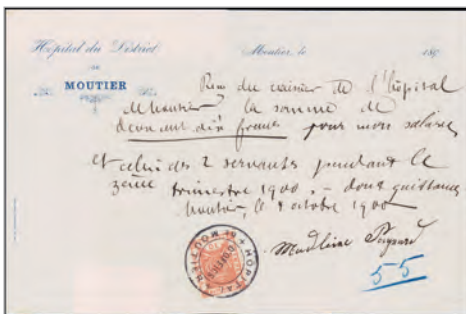 Hôpital du District
Moutier, le 189
DE
MOUTIER
Reçu du caissier de l'hôpital
de Moutier la somme de
deux cent dix francs pour mon salaire
et celui des 2 servantes pendant le
3ème trimestre 1900. – dont quittance
Moutier, le 1 octobre 1900
Madeleine
55
HOPITAL
MOUTIER
DISTRICT